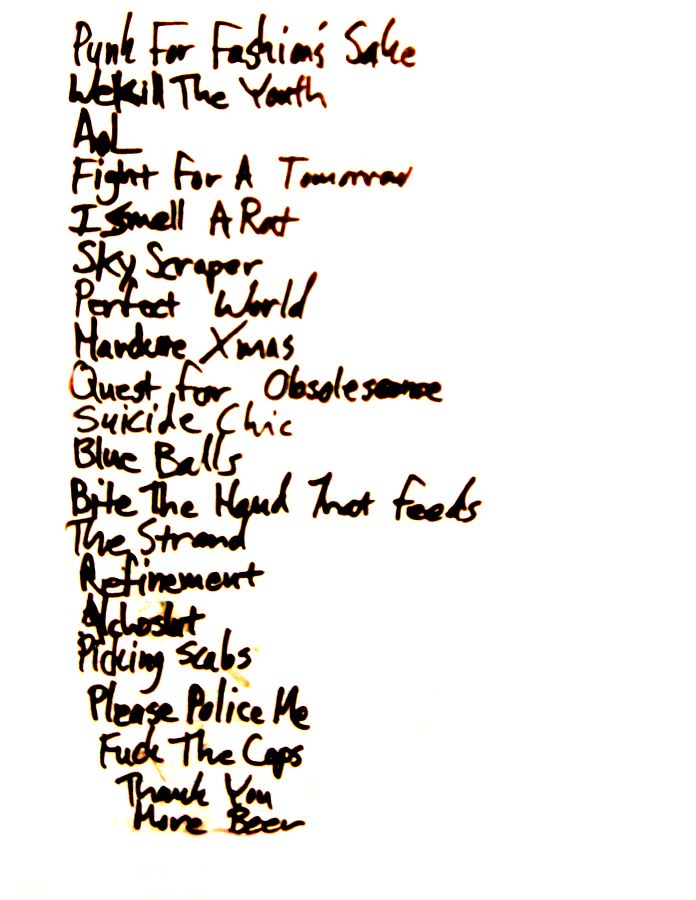 Punk For Fashion's Sake
We Kill The Youth
AOL
Fight For A Tomorrow
I Smell A Rat
Sky Scraper
Perfect World
Hardcore Xmas
Quest For Obsolescence
Suicide Chic
Blue Balls
Bite The Hand That Feeds
The Strand
Refinement
Alchoslut
Picking Scabs
Please Police Me
Fuck The Cops
Thank You
More Beer